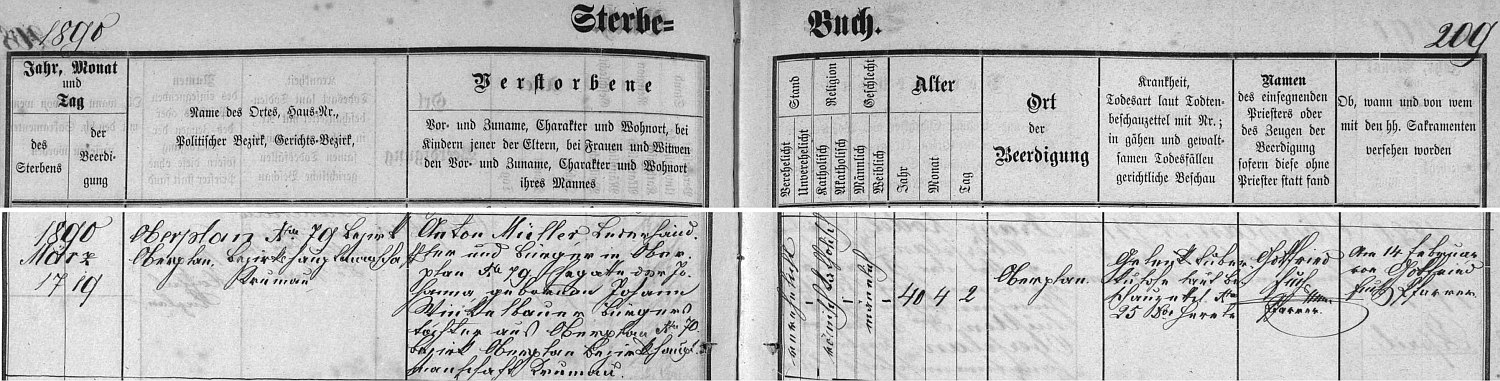 1890
Sterbe=
Buch.
209
Jahr, Monat
und
Tag
des
Sterbens
der
Beerdi-
gung
Name des Ortes, Haus-Nr.,
Politischer Bezirk, Gerichts-Bezirk,
Verstorbene
Vor- und Zuname, Charakter und Wohnort, bei
Kindern jener der Eltern, bei Frauen und Witwen
den Vor- und Zuname, Charakter und Wohnort
ihres Mannes
Stand
Verehelicht
Unverehelicht
Religion
Katholisch
Akatholisch
Geschlecht
Männlich
Weiblich
Alter
Jahr
Monat
Tag
Ort
der
Beerdigung
Krankheit,
Todesart laut Todten-
beschauzettel mit Nr.;
in gähen und gewalt-
samen Todesfällen
gerichtliche Beschau
Namen
des einsegnenden
Priesters oder
des Zeugen der
Beerdigung
sofern diese ohne
Priester statt fand
Ob, wann und von wem
mit den hh. Sakramenten
versehen worden
1890
März
17
19
Oberplan Nro 79 Bezirk
Oberplan, Bezirkshauptmannschaft
Krumau
Anton Müller Lederhänd-
ler und Bürger in Ober-
plan Nro 79, Ehegatte der Jo-
hanna geborenen Johann
Winkelbauer Bürgers
tochter aus Oberplan Nro 70.
Bezirk Oberplan Bezirkshaupt-
mannschaft Krumau.
verehelicht
römisch katholisch
männlich
40
4
2
Oberplan.
tuber-
kulose laut Be-
schauzettl Nro
25
Gottfried
Pfarrer.
Am 14 Februar
von Gottfried
Pfarrer.